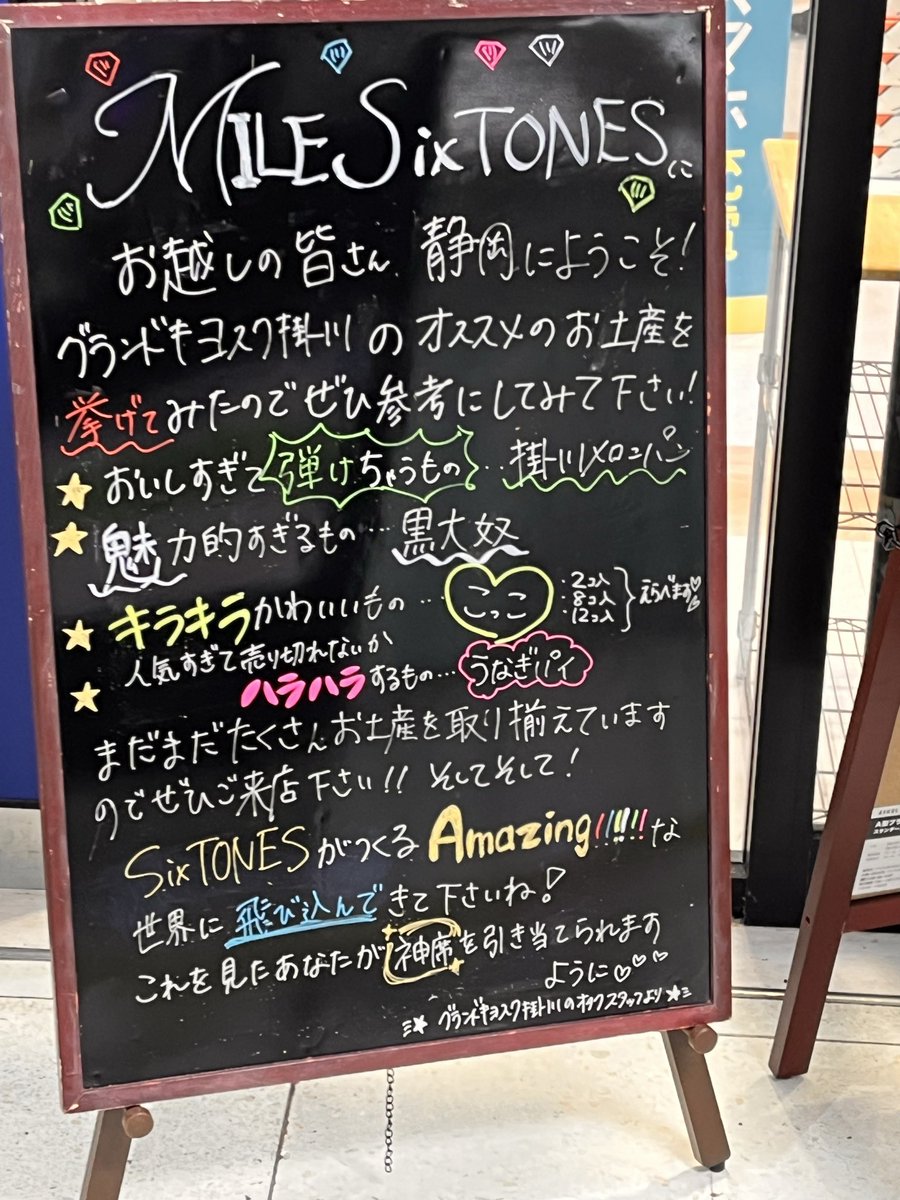 MILE SixTONESに
お越しの皆さん、静岡にようこそ!
グランドキヨスク掛川のオススメのお土産を
挙げてみたのでぜひ参考にしてみて下さい!
おいしすぎて弾けちゃうもの…掛川メロンパン
魅力的すぎるもの…黒大奴
キラキラかわいいもの…こっこ
:2コ入
:8コ入
:12コ入
えらべます♡♡
人気すぎて売り切れないか
ハラハラするもの…うなぎパイ
まだまだたくさんお土産を取り揃えています
のでぜひご来店下さい!! そしてそして!
SixTONESがつくるAmazing!!!!!!な
世界に飛び込んできて下さいね!
これを見たあなたが神席を引き当てられます
ように♡♡♡
グランドキヨスク掛川のオタクスタッフより